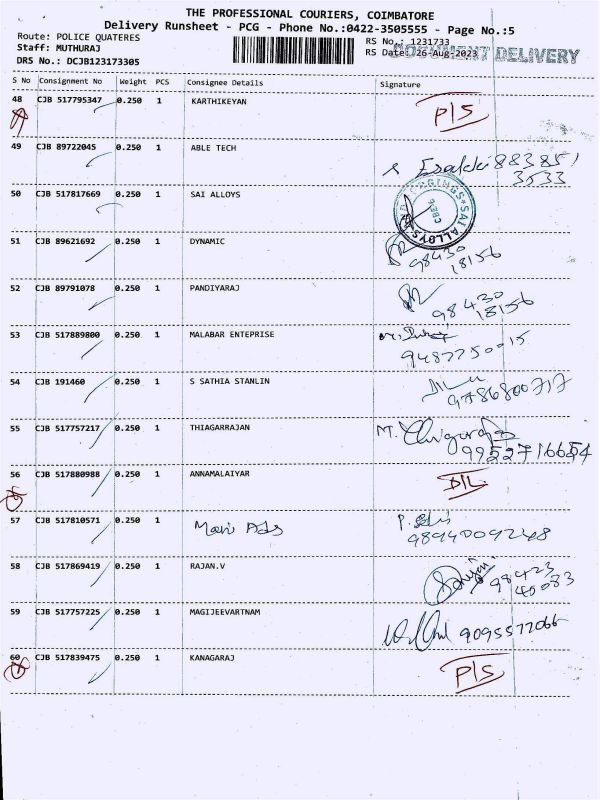 THE PROFESSIONAL COURIERS, COIMBATORE
Delivery Runsheet - PCG - Phone No.:0422-3505555 - Page No.:5
Route: POLICE QUATERES
RS No.: 1231733
Staff: MUTHURAJ
RS Date: 26-Aug-2023
DOCUMENT DELIVERY
DRS No.: DCJB123173305
S No Consignment No Weight PCS Consignee Details Signature
48 CJB 517795347 0.250 1 KARTHIKEYAN P/S
49 CJB 89722045 0.250 1 ABLE TECH Esakki 88385 1
3533
50 CJB 517817669 0.250 1 SAI ALLOYS
SAI ALLOYS
CBE-6
51 CJB 89621692 0.250 1 DYNAMIC 98430
18156
52 CJB 89791078 0.250 1 PANDIYARAJ 98430
18156
53 CJB 517889800 0.250 1 MALABAR ENTEPRISE
54 CJB 191460 0.250 1 S SATHIA STANLIN 9786800717
55 CJB 517757217 0.250 1 THIAGARRAJAN M.
9952716654
56 CJB 517880988 0.250 1 ANNAMALAIYAR D/L
57 CJB 517810571 0.250 1 Mani Ads P.
9894009248
58 CJB 517869419 0.250 1 RAJAN.V 98423
40083
59 CJB 517757225 0.250 1 MAGIJEEVARTNAM 9095577066
60 CJB 517839475 0.250 1 KANAGARAJ P/S